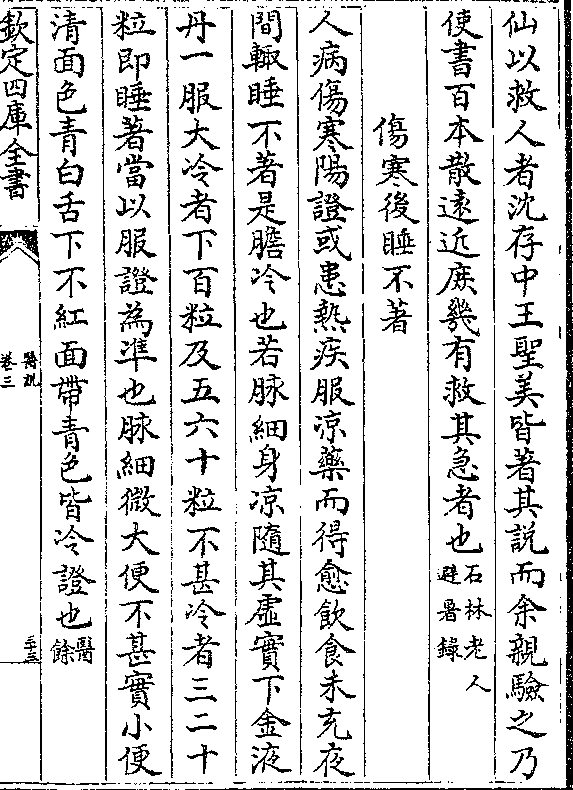 仙以救人者沈存中王聖美皆著其説而余親驗之乃
使書百本散遠近庶幾有救其急者也石林老人
避暑録
傷寒後睡不著
人病傷寒陽證或患熱疾服凉藥而得愈飲食未充夜
間輙睡不著是膽冷也若脉細身凉隨其虛實下金液
丹一服大冷者下百粒及五六十粒不甚冷者三二十
粒即睡著當以服證為凖也脉細微大便不甚實小便
清面色青白舌下不紅面帶青色皆冷證也醫
餘
欽定四庫全書
醫説
卷三
三十三